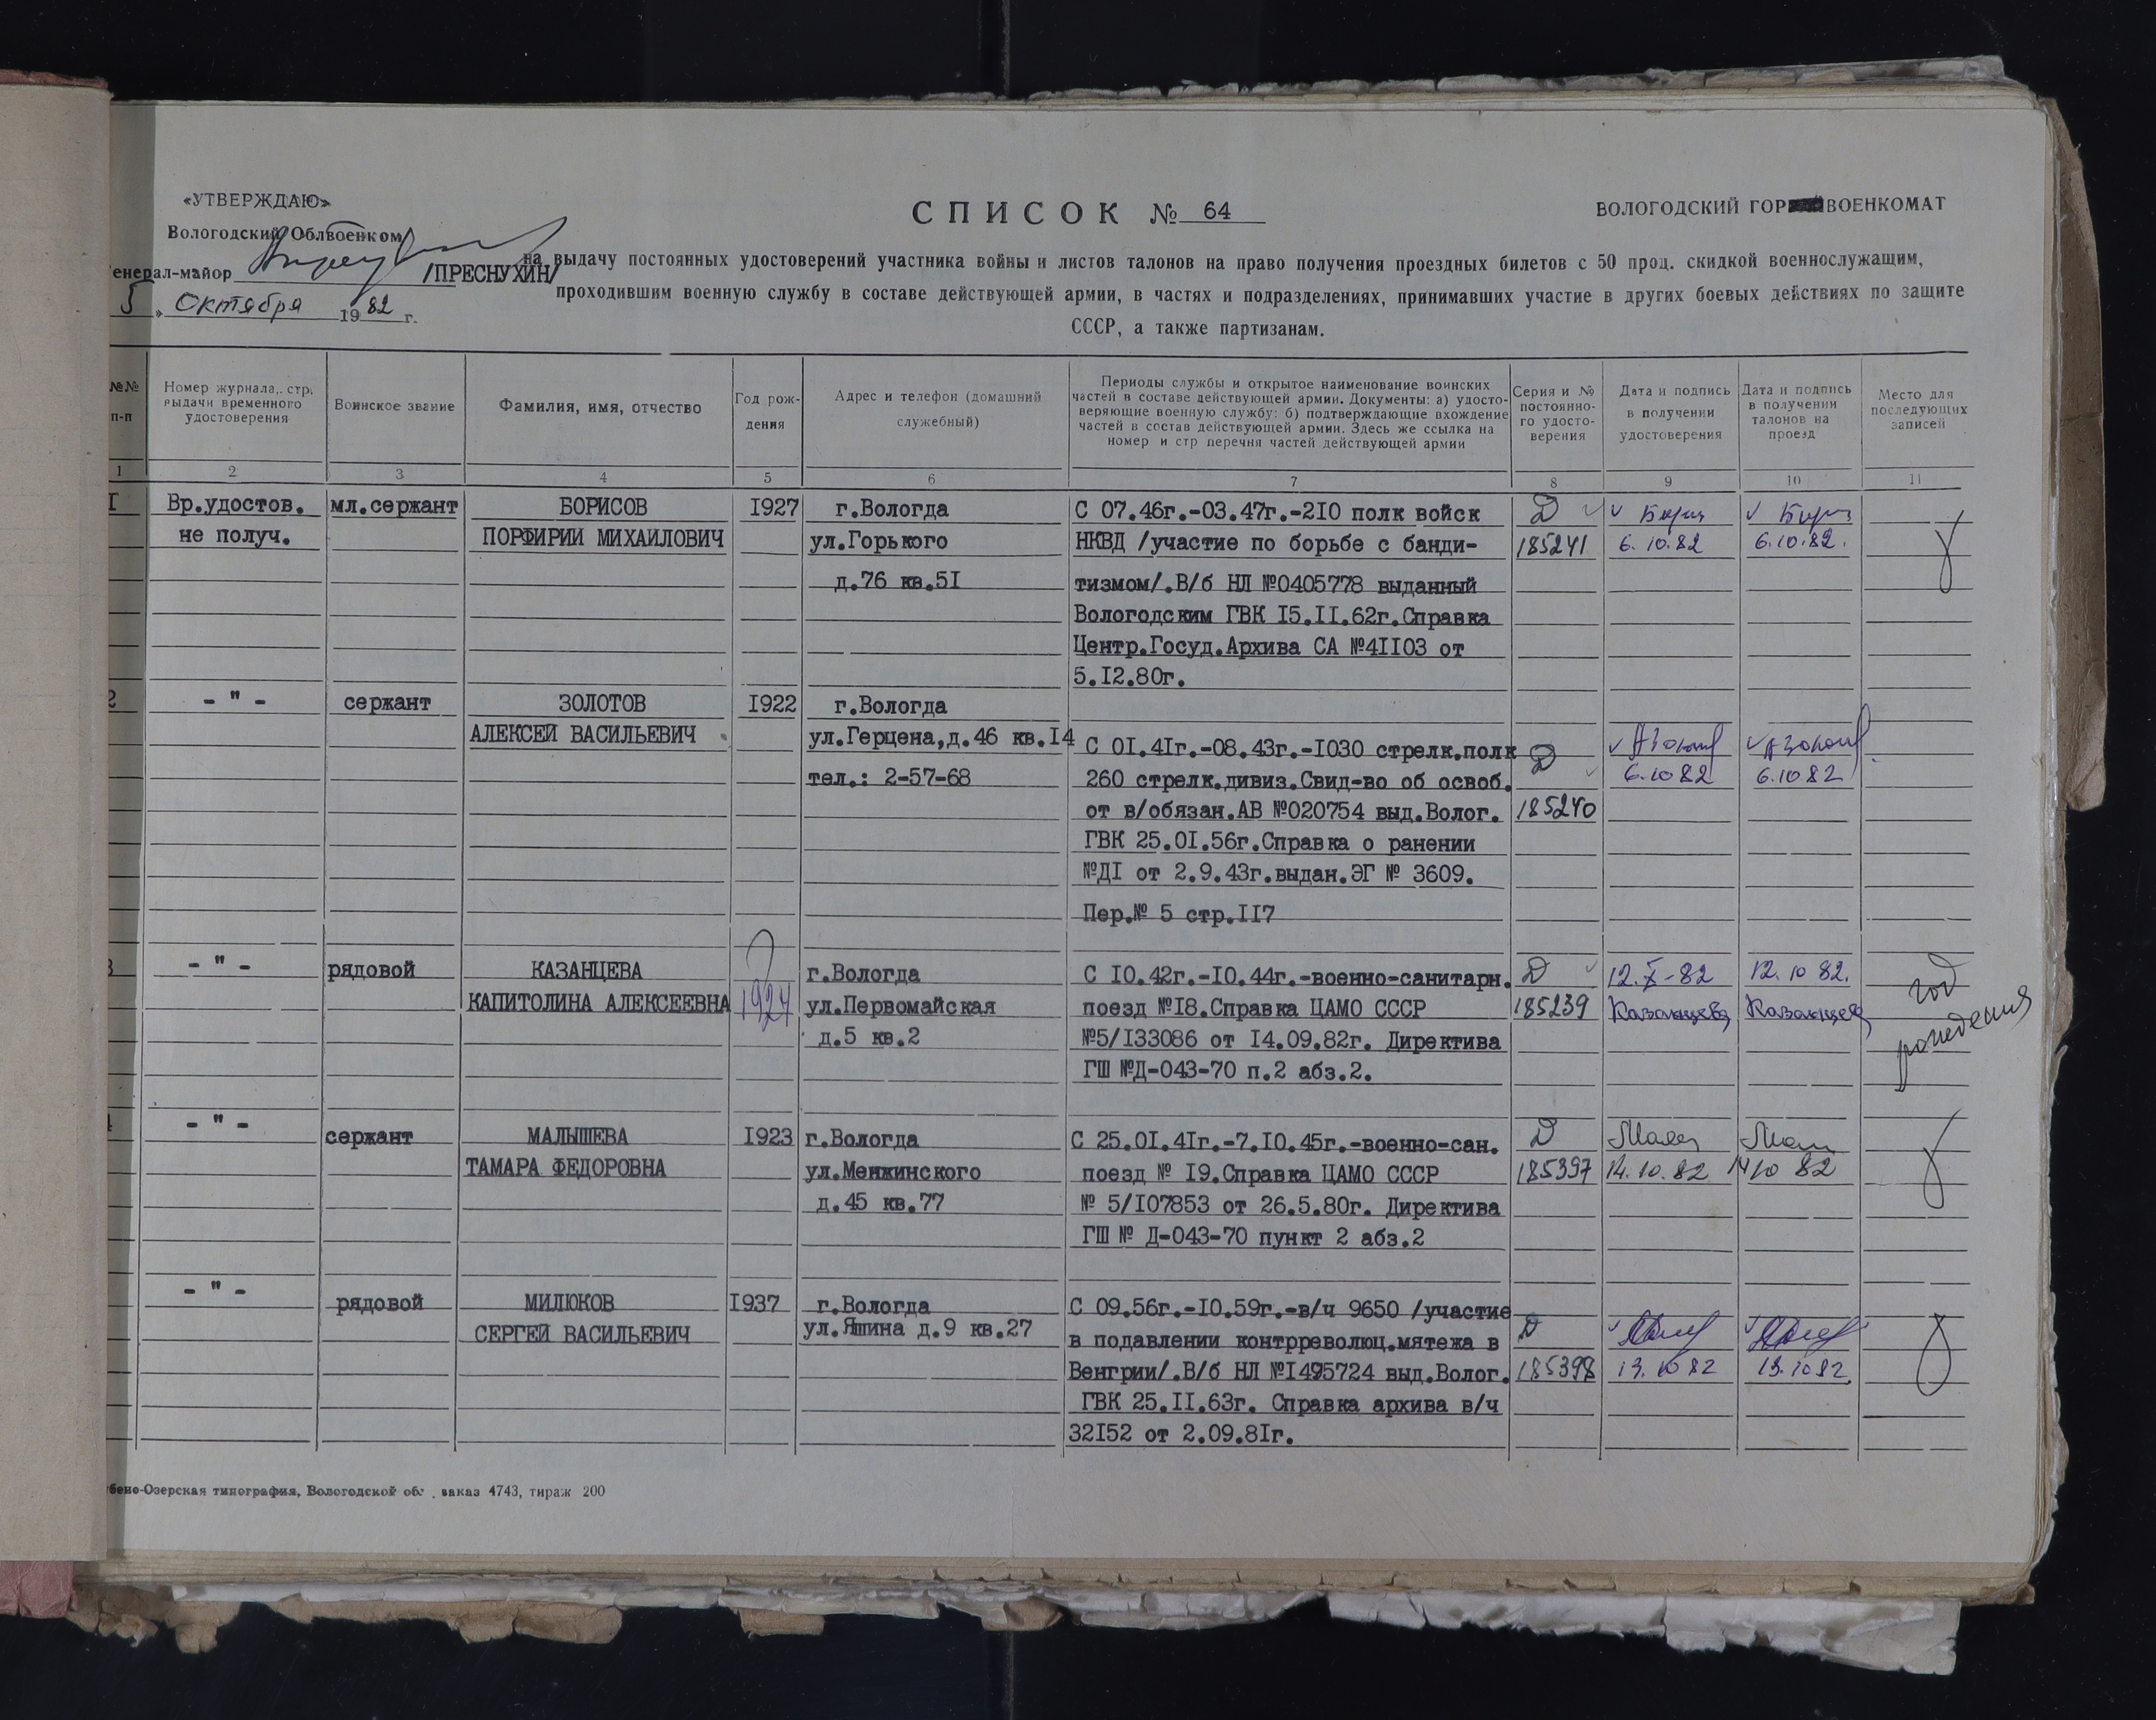 «УТВЕРЖДАЮ»
Вологодский Облвоенком
генерал-майор /ПРЕСНУХИН/
5 » Октября 1982 г.
СПИСОК № 64
ВОЛОГОДСКИЙ ГОР ВОЕНКОМАТ
на выдачу постоянных удостоверений участника войны и листов талонов на право получения проездных билетов с 50 проц. скидкой военнослужащим,
проходившим военную службу в составе действующей армии, в частях и подразделениях, принимавших участие в других боевых действиях по защите
СССР, а также партизанам.
№№
п-п
Номер журнала, стр.
выдачи временного
удостоверения
Воинское звание
Фамилия, имя, отчество
Год рож-
дения
Адрес и телефон (домашний
служебный)
Периоды службы и открытое наименование воинских
частей в составе действующей армии. Документы: а) удосто-
веряющие военную службу: б) подтверждающие вхождение
частей в состав действующей армии. Здесь же ссылка на
номер и стр перечня частей действующей армии
Серия и №
постоянно-
го удосто-
верения
Дата и подпись
в получении
удостоверения
Дата и подпись
в получении
талонов на
проезд
Место для
последующих
записей
1 2 3 4 5 6 7 8 9 10 11
I Вр.удостов. мл.сержант БОРИСОВ I927 г.Вологда С 07.46г.-03.47г.-2I0 полк войск Д
не получ. ПОРФИРИИ МИХАИЛОВИЧ ул.Горького НКВД /участие по борьбе с банди- 185241 6.10.82 6.10.82.
д.76 кв.5I тизмом/.В/б НЛ №0405778 выданный
Вологодским ГВК I5.II.62г.Справка
Центр.Госуд.Архива СА №4II03 от
5.I2.80г.
2 - " - сержант ЗОЛОТОВ I922 г.Вологда
АЛЕКСЕЙ ВАСИЛЬЕВИЧ ул.Герцена,д.46 кв.I4 С 0I.4Iг.-08.43г.-I030 стрелк.полк Д
тел.: 2-57-68 260 стрелк.дивиз.Свид-во об освоб. 6.10 82 6.10 82
от в/обязан.АВ №020754 выд.Волог. 185240
ГВК 25.0I.56г.Справка о ранении
№ДI от 2.9.43г.выдан.ЭГ № 3609.
Пер.№ 5 стр.II7
3 - " - рядовой КАЗАНЦЕВА г.Вологда С I0.42г.-I0.44г.-военно-санитарн. Д 12.X-82 12.10 82. год
КАПИТОЛИНА АЛЕКСЕЕВНА 1924 ул.Первомайская поезд №I8.Справка ЦАМО СССР 185239 Казанцева Казанцева рождения
д.5 кв.2 №5/I33086 от I4.09.82г. Директива
ГШ №Д-043-70 п.2 абз.2.
4 - " - сержант МАЛЫШЕВА I923 г.Вологда С 25.0I.4Iг.-7.I0.45г.-военно-сан. Д
ТАМАРА ФЕДОРОВНА ул.Менжинского поезд № I9.Справка ЦАМО СССР 185397 14.10.82 14 10 82
д.45 кв.77 № 5/I07853 от 26.5.80г. Директива
ГШ № Д-043-70 пункт 2 абз.2
- " - рядовой МИЛЮКОВ I937 г.Вологда С 09.56г.-I0.59г.-в/ч 9650 /участие
СЕРГЕЙ ВАСИЛЬЕВИЧ ул.Яшина д.9 кв.27 в подавлении контрреволюц.мятежа в Д
Венгрии/.В/б НЛ №I495724 выд.Волог. 185398 13.10 82 13.10 82.
ГВК 25.II.63г. Справка архива в/ч
32I52 от 2.09.8Iг.
бено-Озерская типография, Вологодской обл. заказ 4743, тираж 200